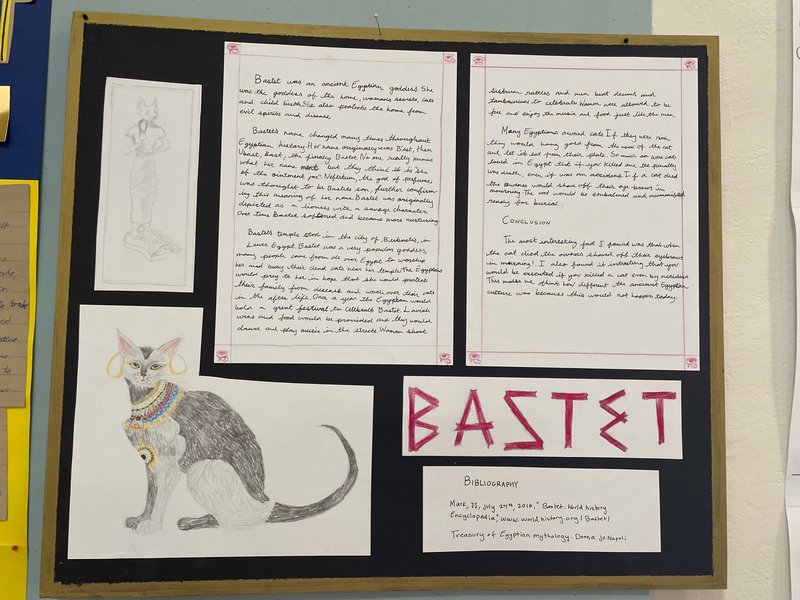 Bastet was an ancient Egyptian goddess. She
was the goddess of the home, woman's secrets, cats
and child birth. She also protects the home from
evil spirits and disease.
Bastet's name changed many times throughout
Egyptian history. Her name originally was B'sst, than
Ubast, Bast, the finaley Bastet. No one really knows
what her name ment but they think it is 'She
of the ointment jar'. Nefertum, the god of perfume
was thought to be Bastets son, further confirm-
ing this meaning of her name. Bastet was originally
depicted as a lioness with a savage character.
Over time Bastet softened and became more nurturing.
Bastet's temple stood in the city of Bubastis, in
Lower Egypt. Bastet was a very popular goddess,
many people came from all over Egypt to worship
her and bury their dead cats near her temple. The Egyptians
would pray to her in hope that she would protect
their family from disease and watch over their cats
in the after life. Once a year the Egyptian would
hold a great festival to celebrate Bastet. Lavish
wine and food would be provided and they would
dance and play music in the streets. Woman shook
sistrum rattles and men beat drums and
tambourines to celebrate. Woman were allowed to be
free and enjoy the music and food just like the men.
Many Egyptians owned cats. If they were rich
they would hang gold from the neck of the cat
and let it eat from their plate. So much so were cats
loved in Egypt that if you killed one the penalty
was death, even if was an accident. If a cat died
the owners would shave off their eye brows in
mourning. The cat would be embalmed and mummified
ready for burial.
CONCLUSION
The most interesting fact I found was that when
the cat died the owners shaved off their eyebrows
in mourning! I also found it interesting that you
would be executed if you killed a cat even by accident.
This made me think how different the ancient Egyptian
culture was because this would not happen today.
BASTET
BIBLIOGRAPHY
Mark, JJ, July 24th, 2016, "Bastet. World history
Encyclopedia", www.world history.org/Bastet/
Treasury of Egyptian mythology. Donna Jo Napoli